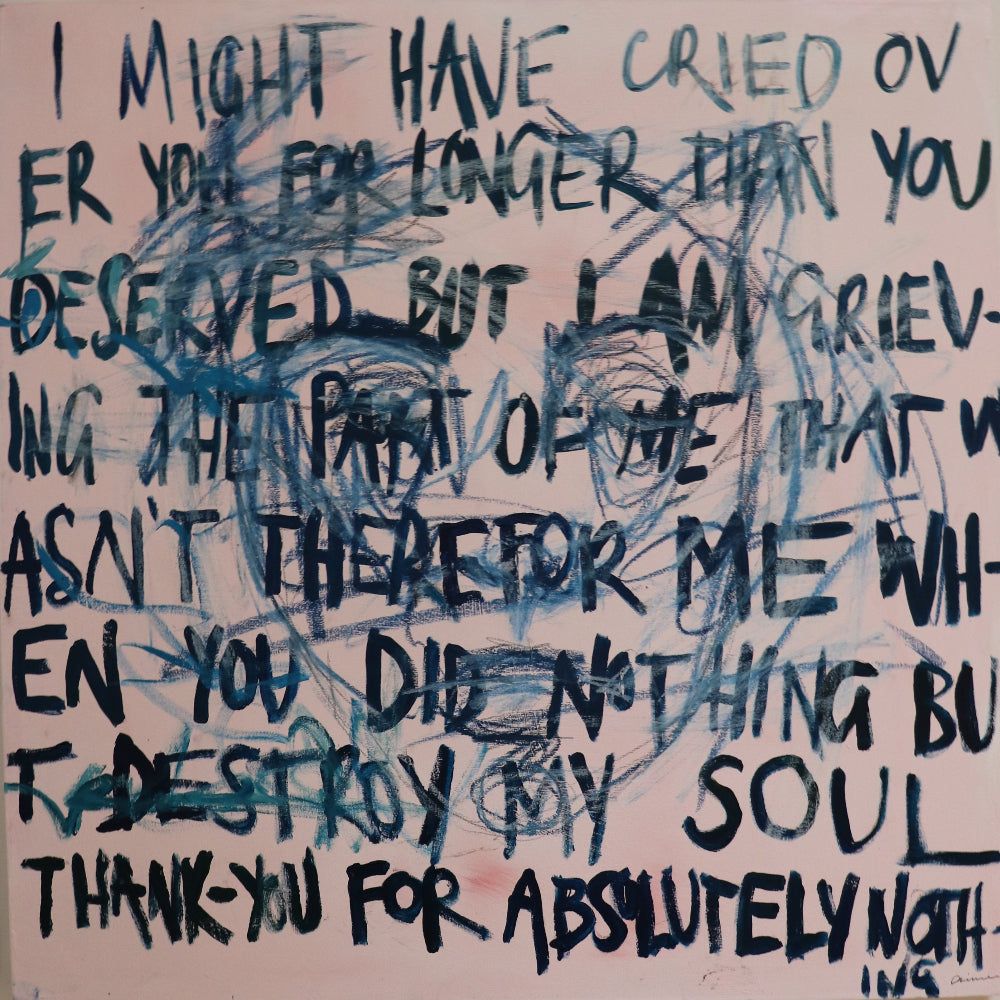 I MIGHT HAVE CRIED OV
ER YOU FOR LONGER THAN YOU
DESERVED BUT I AM GRIEV-
ING THE PART OF ME THAT W
ASN'T THERE FOR ME WH-
EN YOU DID NOTHING BU
T DESTROY MY SOUL
THANK-YOU FOR ABSOLUTELY NOTH-
ING